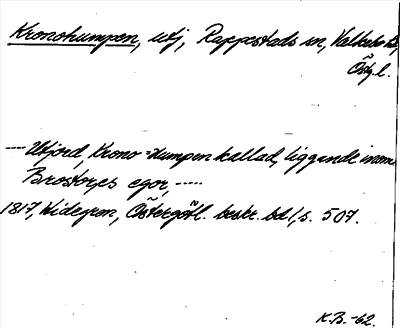 Kronohumpen, utj, Rappestads sn, Valkebo hd,
Östg.l.
--- Utjord, Krono-Humpen kallad, liggande inom
Brostorps egor, -----
1817, Widegren, Östergötl. beskr. bd 1, s. 507.
K.B. -62.